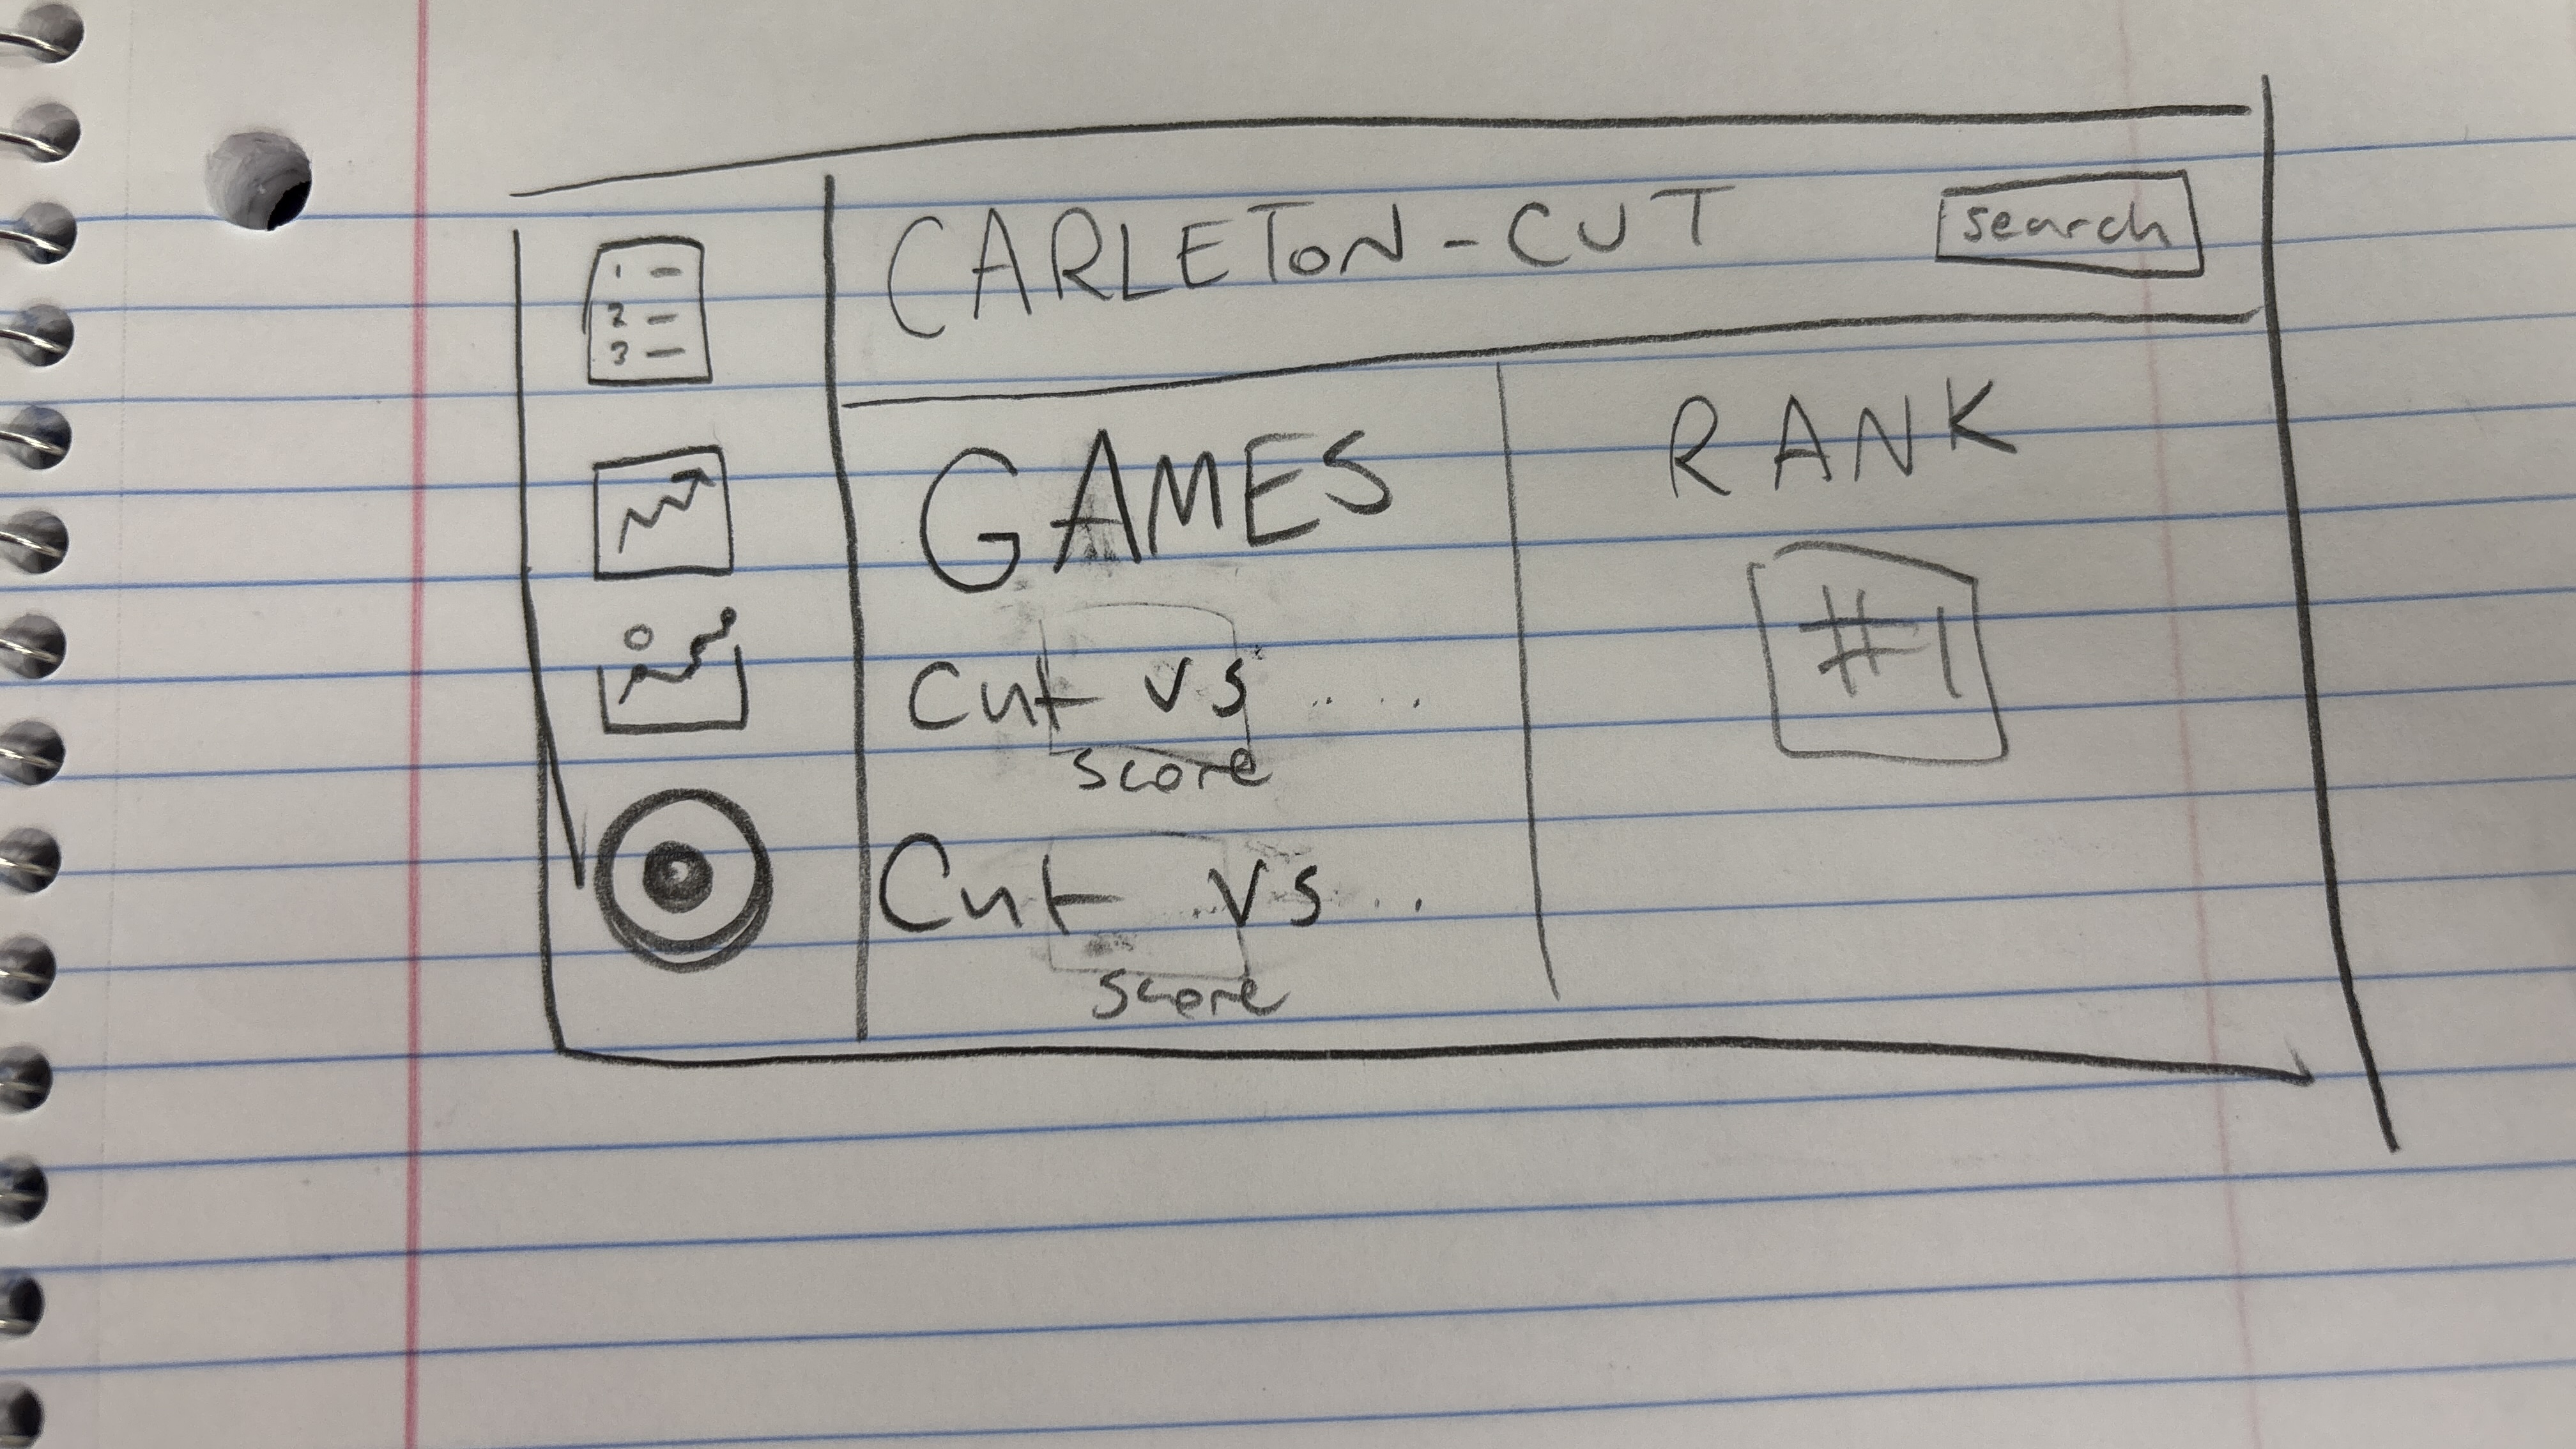 1 -
2 -
3 -
CARLETON-CUT
search
GAMES
Cut vs ....
score
Cut vs ..
score
RANK
#1